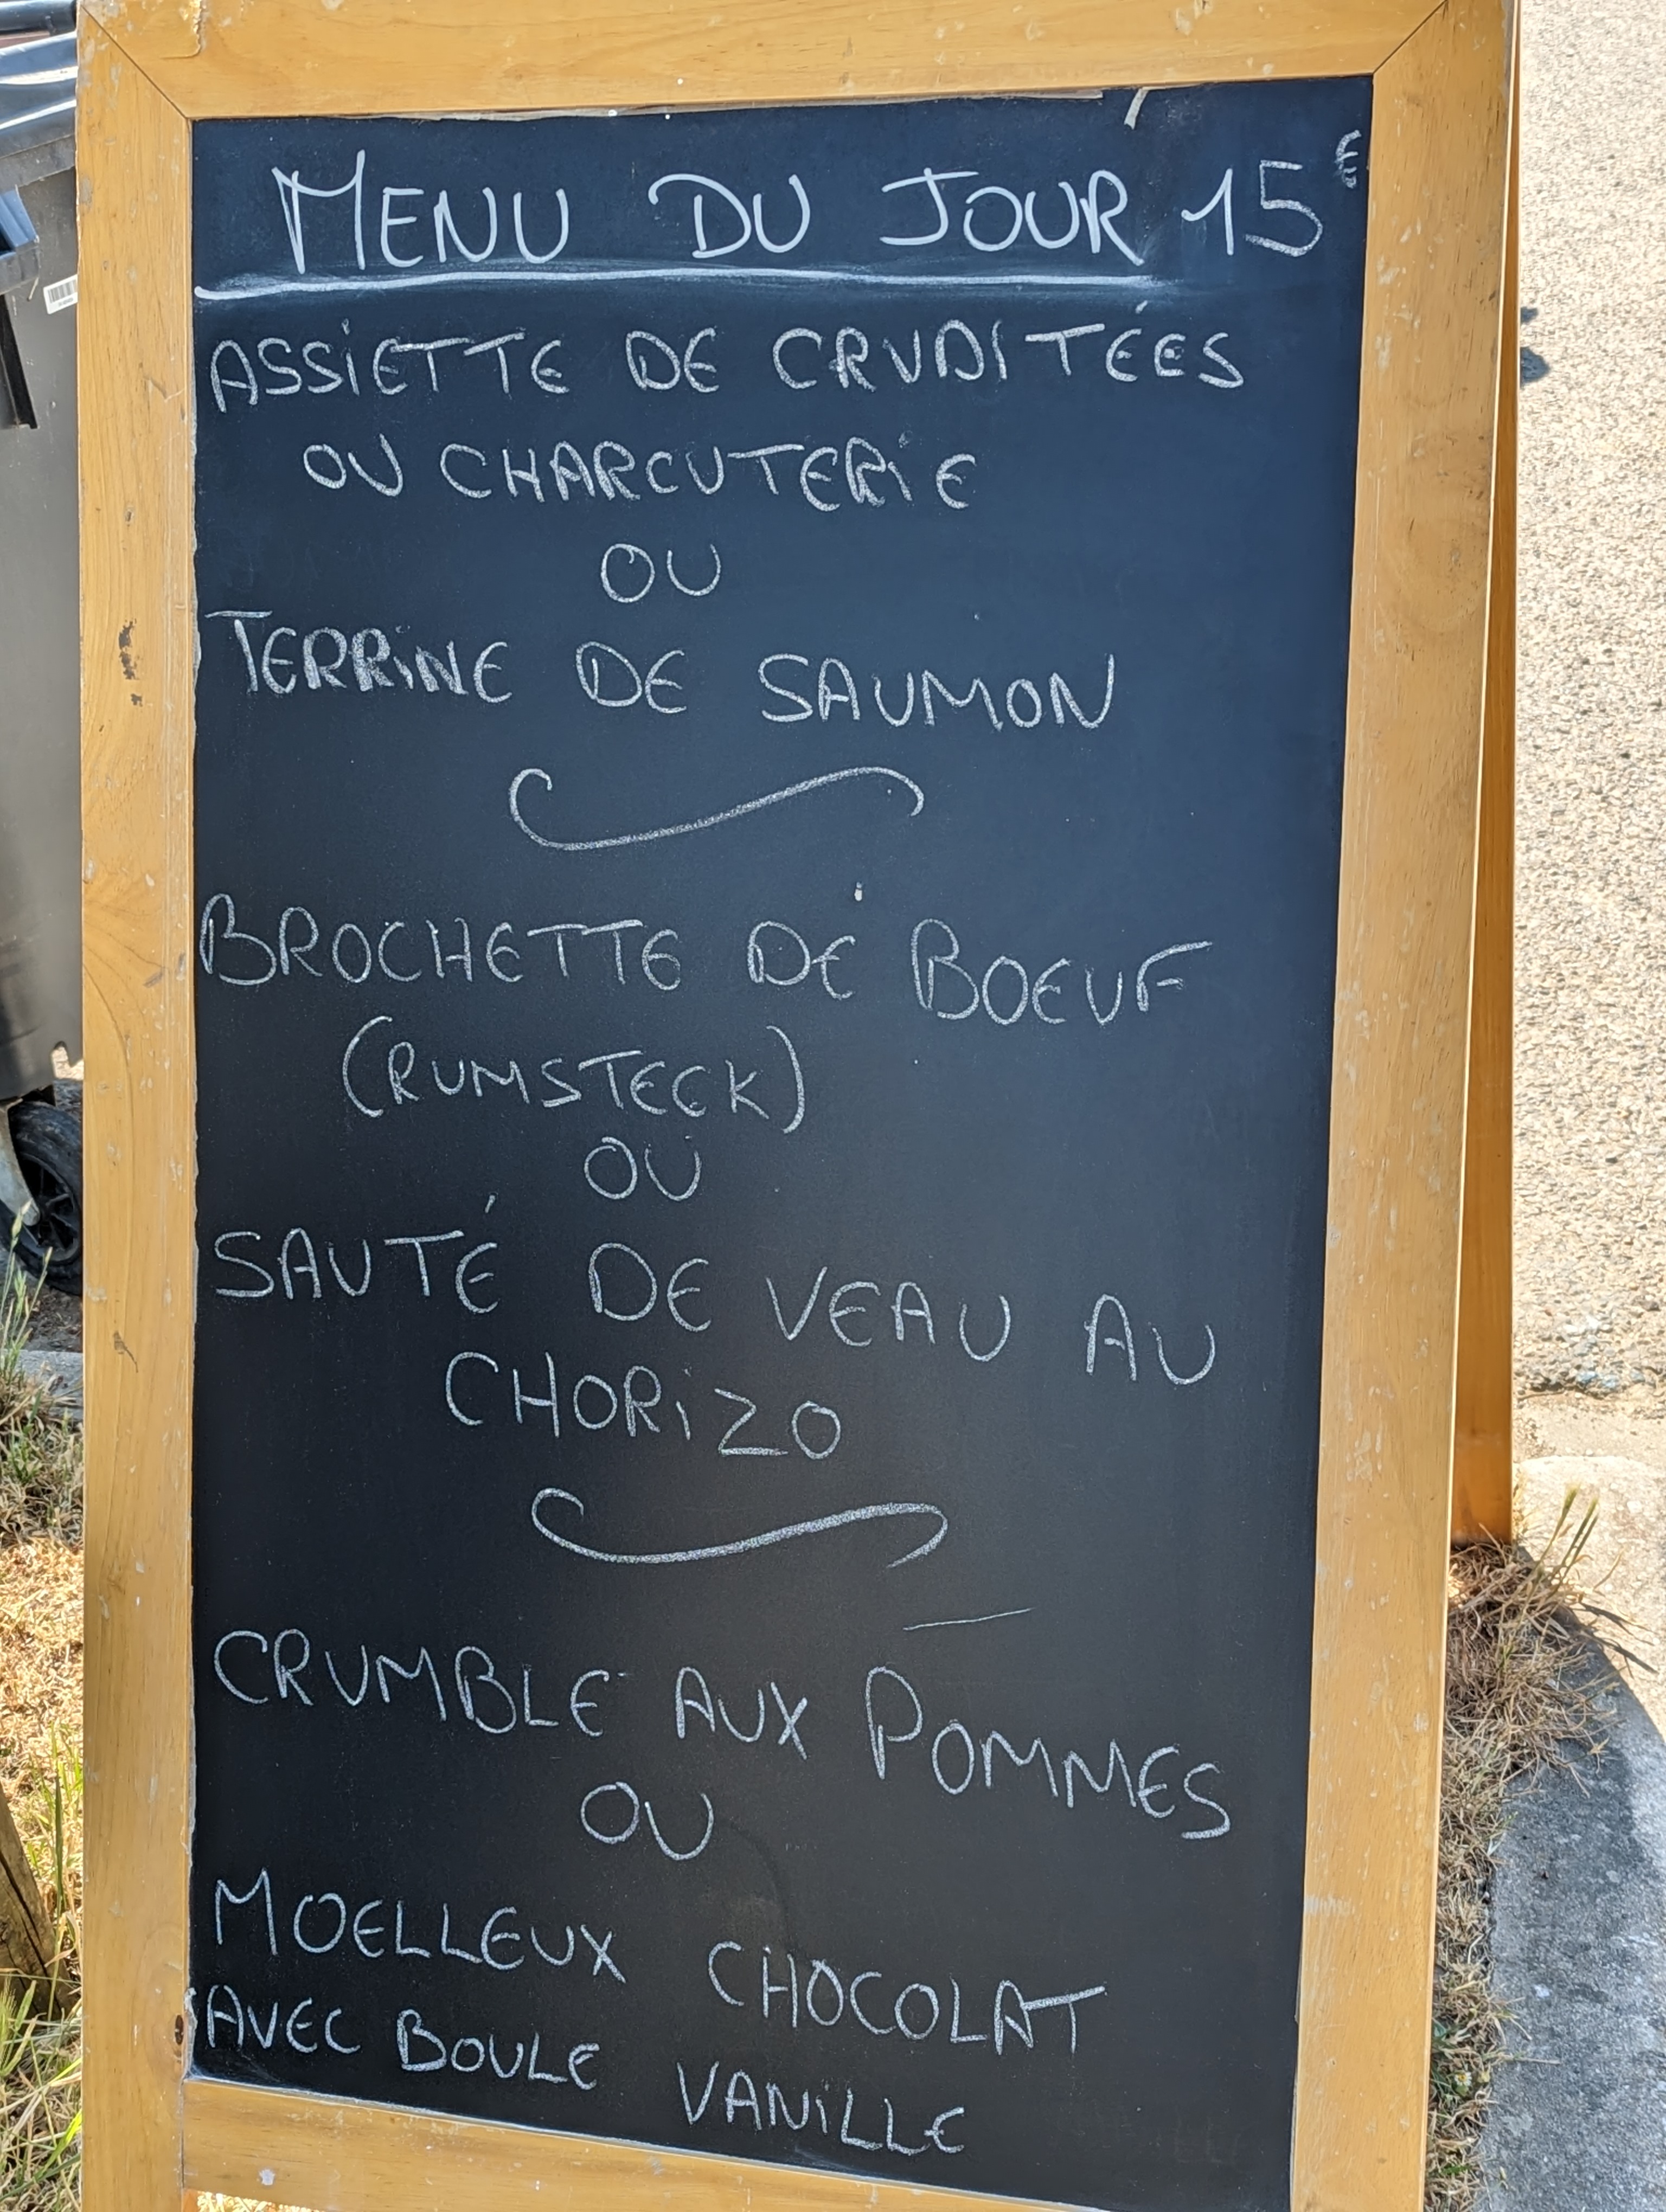 MENU DU JOUR 15€
ASSIETTE DE CRUDITÉES
OU CHARCUTERIE
OU
TERRINE DE SAUMON
BROCHETTE DE BOEUF
(RUMSTECK)
OU
SAUTÉ DE VEAU AU
CHORIZO
CRUMBLE AUX POMMES
OU
MOELLEUX CHOCOLAT
AVEC BOULE VANILLE